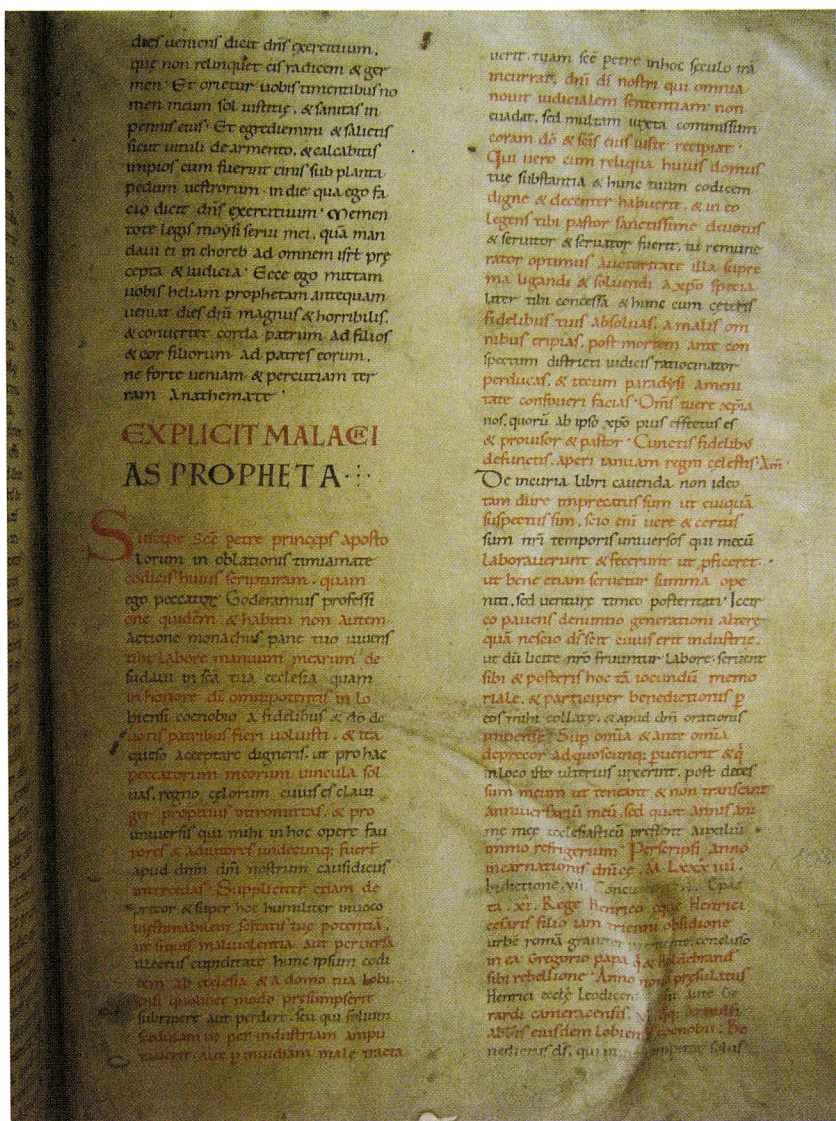 dies ueniens dicit dñs exercituum,
que non relinquet eis radicem & ger
men. Et orietur uobis timentibus no
men meum sol iustitię, & sanitas in
pennis eius. Et egrediemini & salietis
sicut uituli de armento, & calcabitis
impios cum fuerint cinis sub planta
pedum uestrorum. in die qua ego fa
cio dicit dñs exercituum. Memen
tote legis moysi serui mei, qua man
daui ei in choreb ad omnem isrł prę
cepta & iudicia. Ecce ego mittam
uobis heliam prophetam antequam
ueniat dies dñi magnus & horribilis,
& conuertet corda patrum ad filios
& cor filiorum ad patres eorum,
ne forte ueniam & percutiam ter
ram Anathemate.
EXPLICIT MALACHI
AS PROPHETA
Suscipe sc̄e petre princeps aposto
lorum in oblationis timiamate
codicis huius scripturam, quam
ego peccator Goderannus professi
one quidem & habitu non autem
actione monachus pane tuo uiuens
tibi labore manuum mearum de
sudaui in sc̄a tua ecclesia quam
in honore dī omnipotentis in lo
biensi coenobio a fidelibus & dō de
uotis patribus fieri uoluisti. & ita
queso acceptare digneris. ut pro hac
peccatorum meorum uincula sol
uas, regno celorum cuius es claui
ger propitius intromittas, & pro
uniuersis qui mihi in hoc opere fau
tores & adiutores undecunq; fuerī
apud dnm dm̄ nostrum causidicus
intercedas. Suppliciter etiam de
precor & super hoc humiliter inuoco
inestimabilem potentiā,
ut siquis maliuolentia aut peruersa
cupiditate hunc ipsum codi
cem ab ecclesia & a domo tua lobi
ensi quolibet modo presumpserit
subripere aut perdere, seu qui folium
scedulam ue per industriam ampu
tauerit aut p inuidiam male tracta
uerit. tuam sc̄e petre in hoc sęculo irā
incurrat, dn̄i dī nostri qui omnia
nouit iudicialem sententiam non
euadat, sed multam iuxta commissum
coram dō & sc̄is eius iuste recipiat.
Qui uero cum reliqua huius domus
tuę substantia & hunc tuum codicem
digne & decenter habuerit, & in eo
legens tibi pastor sanctissime deuotus
& seruitor & seruator fuerit, tu remune
rator optimus auctoritate illa supre
ma ligandi & soluendi a xp̄o specia
liter tibi concessa & hunc cum ceteris
fidelibus tuis absoluas, a malis om
nibus eripias, post mortem ante con
spectum districti iudicis ratiocinator
perducas, & tecum paradysi ameni
tate confoueri facias. Om̄s tuere xp̄ia
nos, quorū ab ipso xp̄o pius effectus es
& prouisor & pastor. Cunctis fidelibus
defunctis, aperi ianuam regni cęlestis Am̄.
De incuria libri cauenda non ideo
tam dure imprecatus sum ut cuiquā
suspectus sim, scio eni uere & certus
sum nr̄i temporis uniuersos qui mecū
laborauerunt & fecerunt ut pficeret.
ut bene etiam seruetur summa ope
niti, sed uenturę timeo posteritati. Iccir
co pauens denuntio generationi alterę
quā nescio cuius erit industrię.
ut dū licite nr̄o fruuntur labore. seruent
sibi & posteris hoc tā iocundū memo
riale, & participer benedictionis p
eos mihi collatę, & apud dn̄i orationis
impensę. Sup omīa & ante omīa
deprecor ad quoscunq; puenerit & q̄
in loco isto ulterius uixerint. post deces
sum meum ut teneant & non transeant
anniuersariū meū. sed quot annis ani
mę meę ecclesiasticū prestent auxiliū
immo refrigerium. Perscripsi anno
incarnationis dn̄icę. M. Lxxx. iiii.
Indictione. vii. Epac
ta. xi. Rege Henrico Henrici
cesaris filio iam trienni obsidione
urbē romā concluso
in ea Gregorio papa q & hildebrand
sibi rebellione. Anno presulatus
Henrici Leodicen aute Ge
rardi cameracensis,
abbis eiusdem Lobien coenobii. Be
nedictus ds, qui in imperat solus